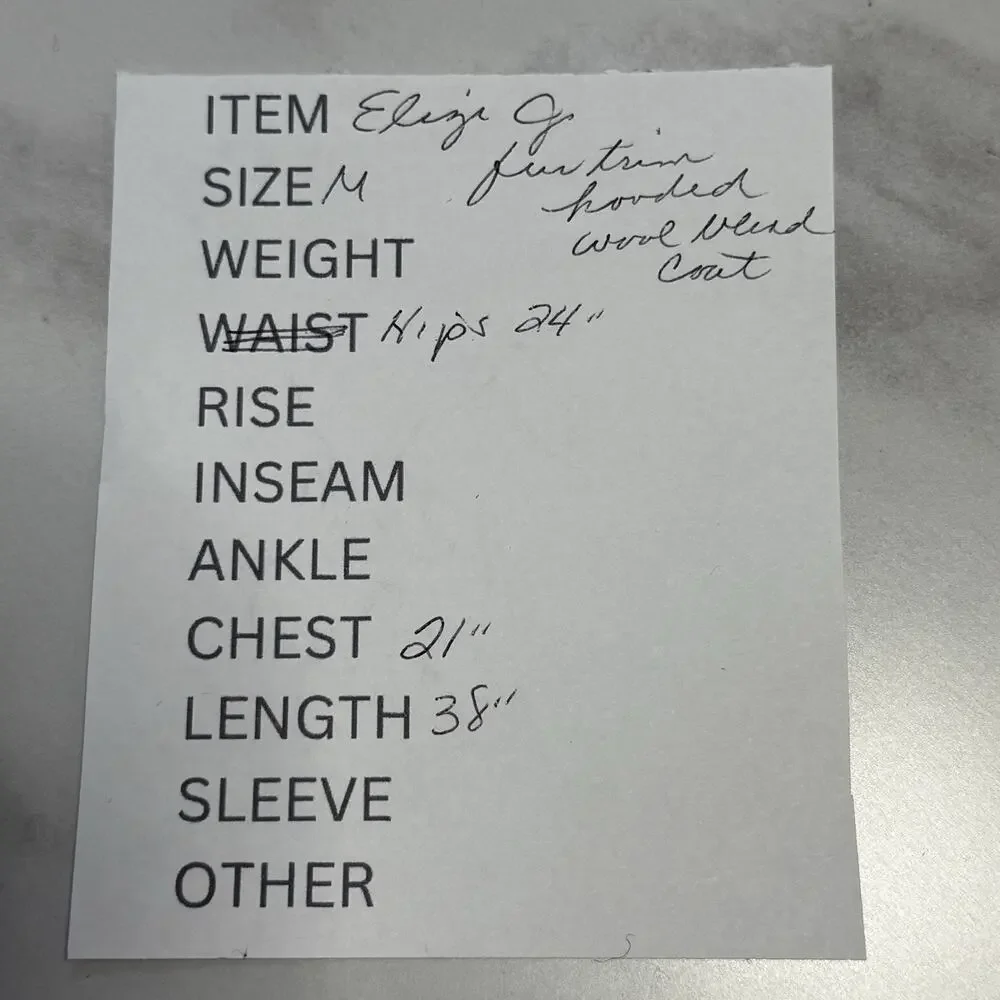 ITEM Eliza J
fur trim
SIZE M
hooded
wool blend
WEIGHT
coat
WAIST Hips 24"
RISE
INSEAM
ANKLE
CHEST 21"
LENGTH 38"
SLEEVE
OTHER